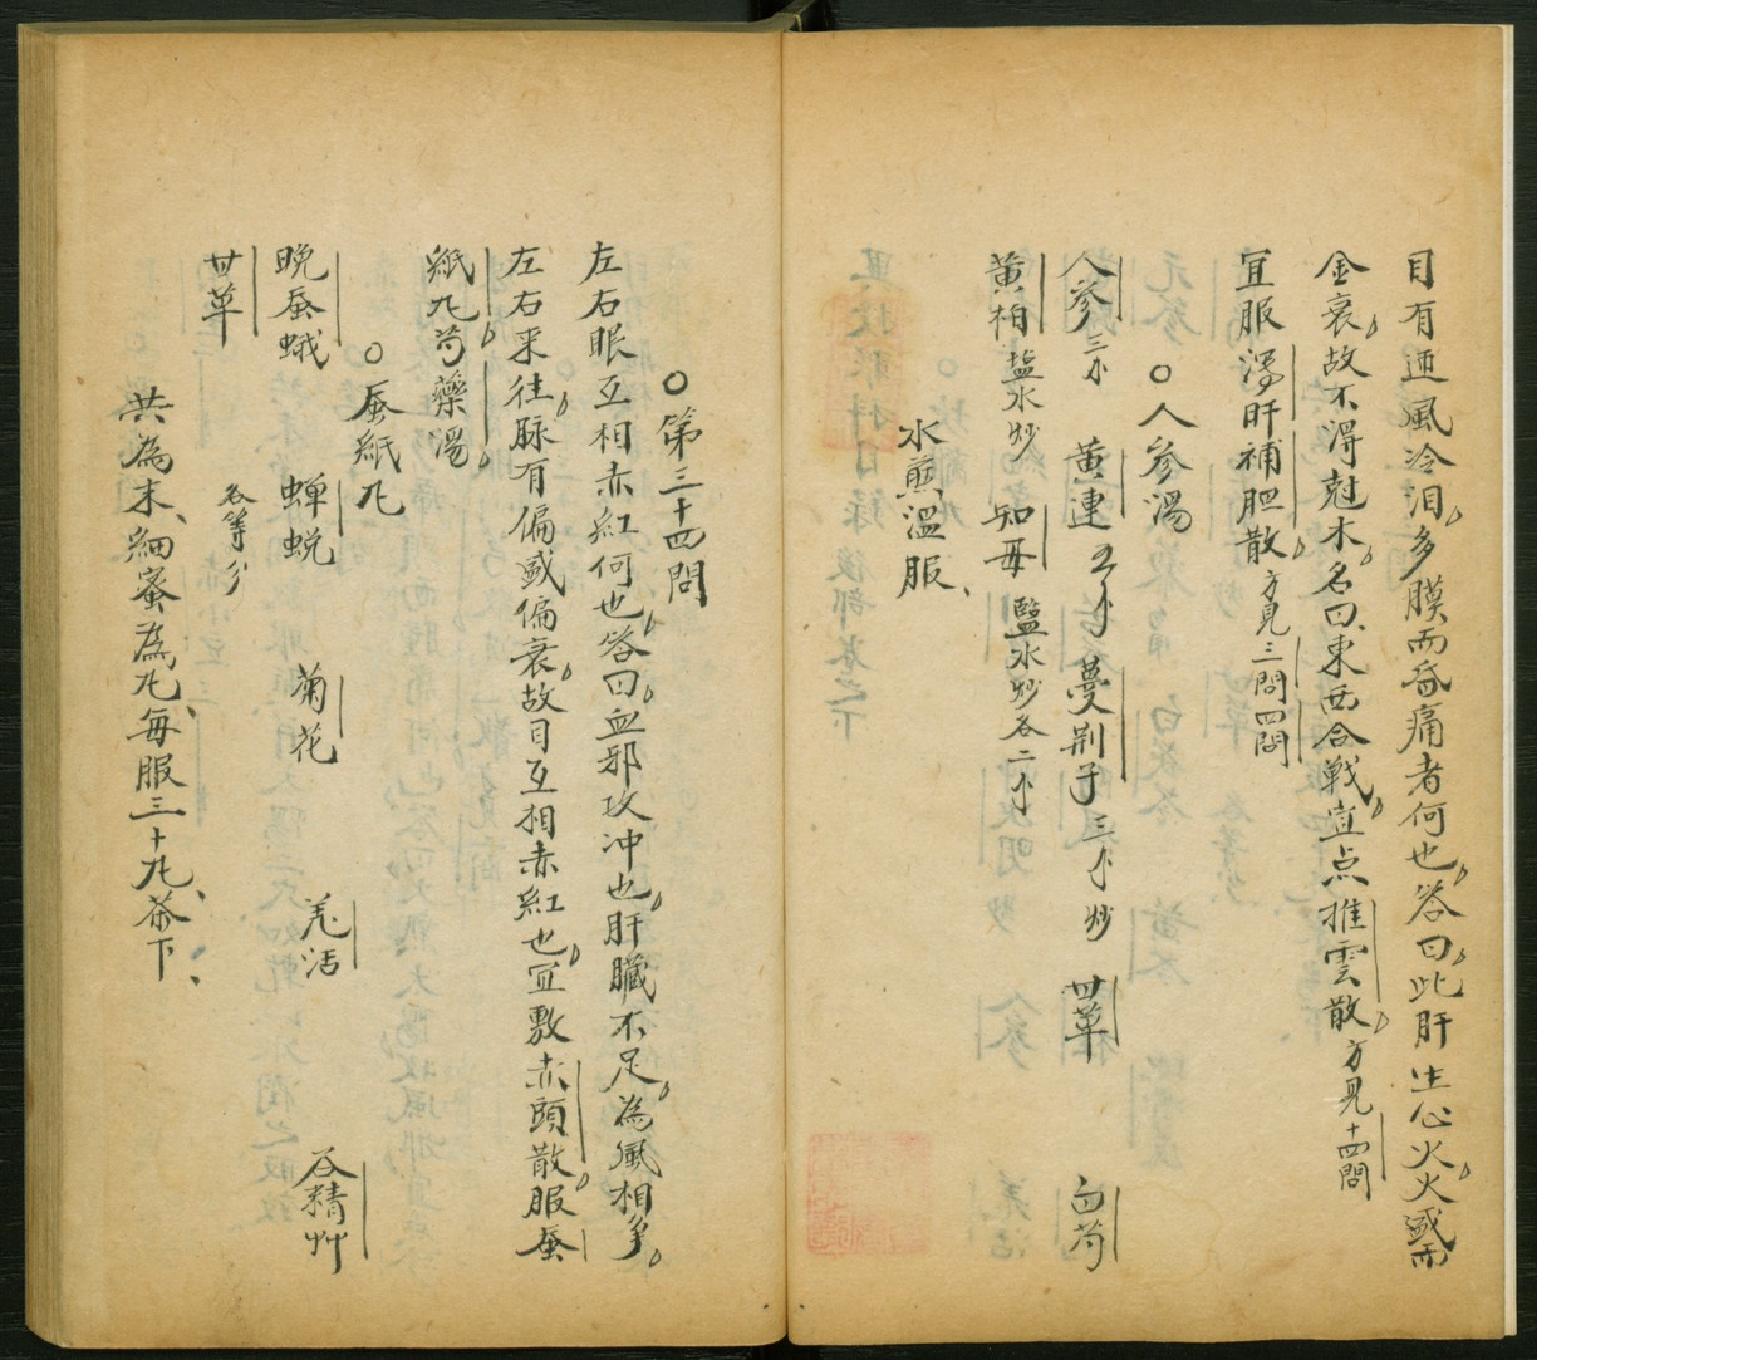 目有迎風冷泪多膜而昏痛者何也答曰此肝生心火火盛而
金衰故不得尅木名曰東西合戦宜点推雲散方見十四問
宜服瀉肝補胆散方見三問四問
○人参湯
人参三个 黄連 五个 蔓荆子三个炒 甘草 白芍
黄柏盐水炒 知母 盬水炒各二个
水煎温服、
○第三十四問
左右眼互相赤紅何也答曰血邪攻冲也肝臓不足為風相争
左右来往脉有偏盛偏衰故目互相赤紅也宜敷赤頭散服蚕
紙丸芎藥湯
○蚕紙丸
晩蚕蛾 蝉蜕 菊花 羌活 谷精艸
甘草 各等分
共為末、細蜜為丸、每服三十丸、茶下、